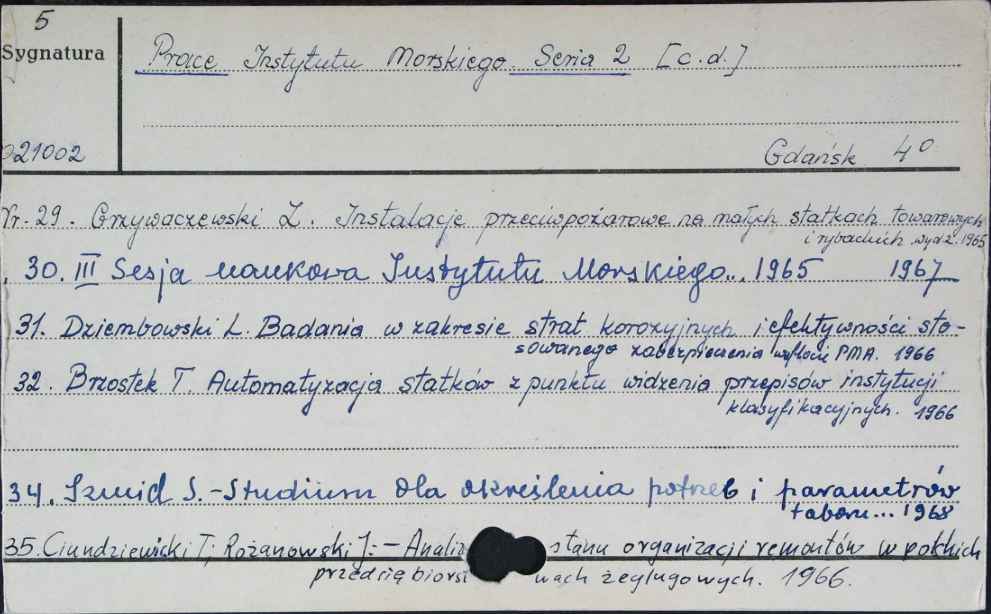 5
Sygnatura
Prace Instytutu Morskiego Seria 2 [c.d.]
021002
Gdańsk 4°
Nr. 29. Grzywaczewski Z. Instalacje przeciwpożarowe na małych statkach towarowych
i rybackich wyd 2. 1965
30. III Sesja naukowa Instytutu Morskiego.. 1965 1967
31. Dziembowski L. Badania w zakresie strat korozyjnych i efektywności sto-
sowanego zabezpieczenia we flocie PMA. 1966
32. Brzostek T. Automatyzacja statków z punktu widzenia przepisów instytucji
klasyfikacyjnych. 1966
34. Szmid S. - Studium dla określenia potrzeb i parametrów
taboru... 1968
35. Ciundziewicki T; Rożanowski J: - Analiz stanu organizacji remontów w polskich
przedsiębiorst wach żeglugowych. 1966.